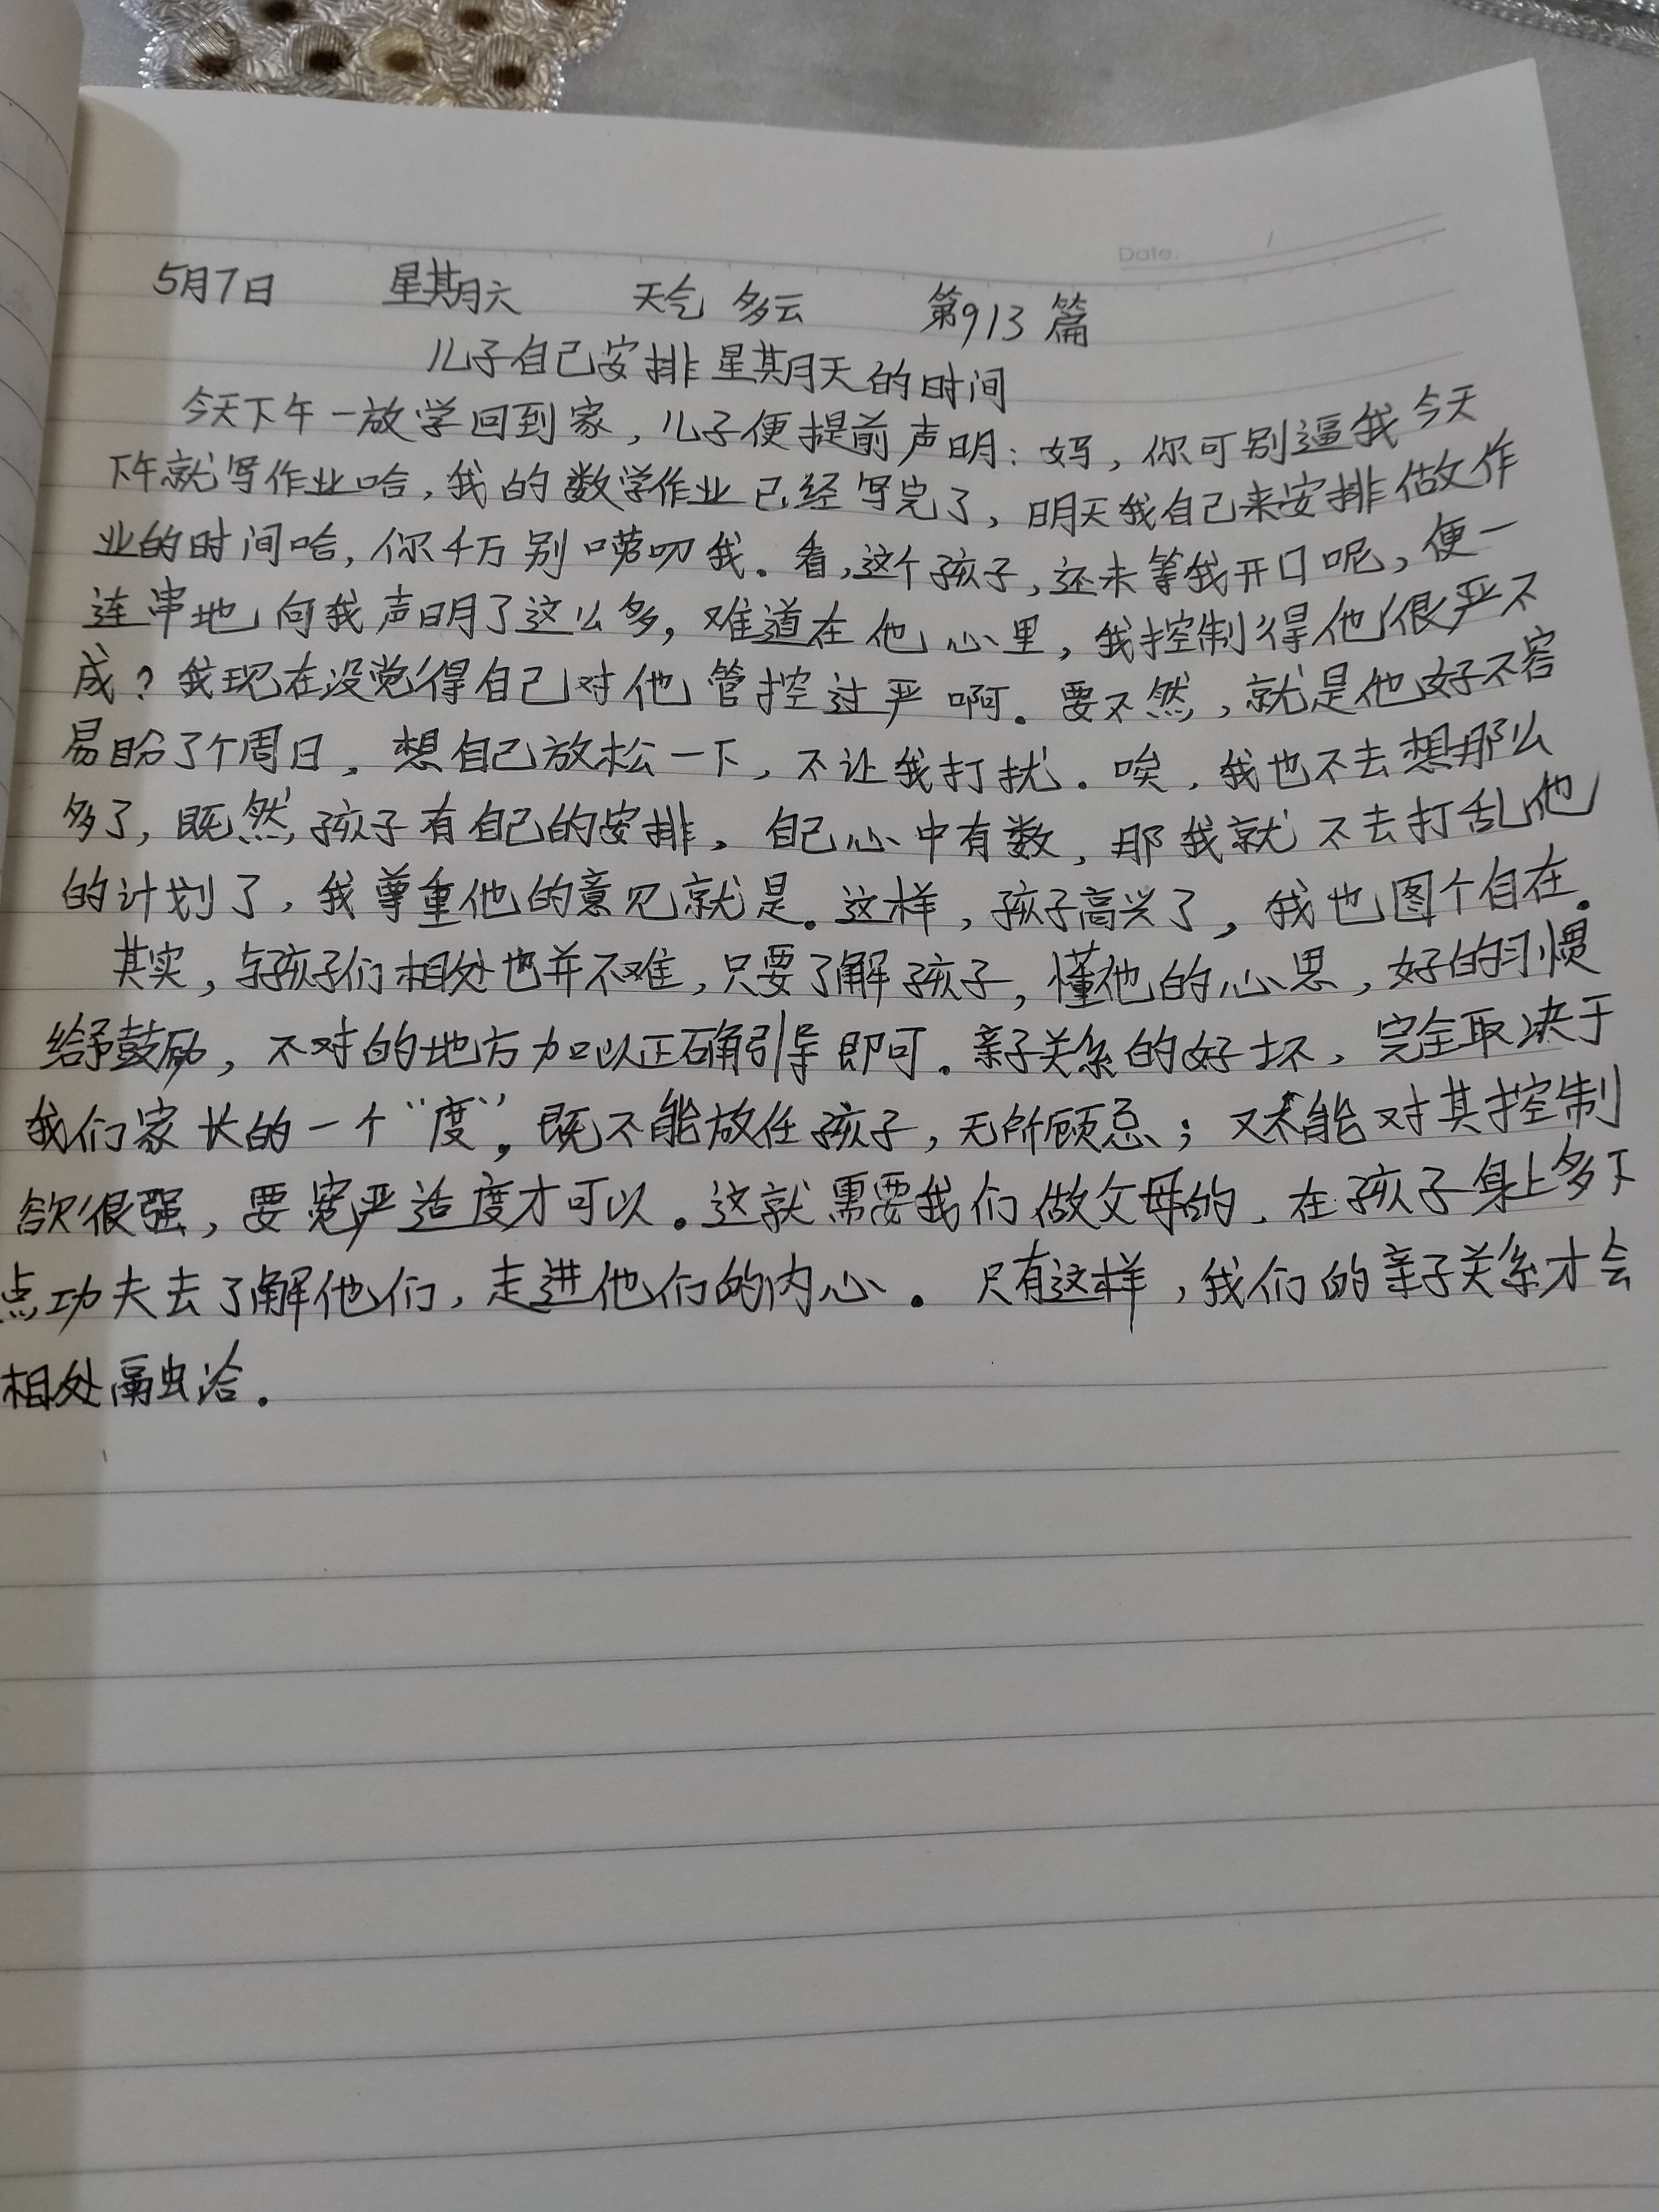 Date.
5月7日 星期六 天气 多云 第913篇
儿子自己安排星期天的时间
今天下午一放学回到家,儿子便提前声明:妈,你可别逼我今天
下午就写作业哈,我的数学作业已经写完了,明天我自己来安排做作
业的时间哈,你千万别唠叨我。看,这个孩子,还未等我开口呢,便一
连串地向我声明了这么多,难道在他心里,我控制得他很严不
成?我现在没觉得自己对他管控过严啊。要不然,就是他好不容
易盼了个周日,想自己放松一下,不让我打扰。唉,我也不去想那么
多了,既然孩子有自己的安排,自己心中有数,那我就不去打乱他
的计划了,我尊重他的意见就是。这样,孩子高兴了,我也图个自在。
其实,与孩子们相处也并不难,只要了解孩子,懂他的心思,好的习惯
给予鼓励,不对的地方加以正确引导即可。亲子关系的好坏,完全取决于
我们家长的一个“度”。既不能放任孩子,无所顾忌;又不能对其控制
欲很强,要宽严适度才可以。这就需要我们做父母的,在孩子身上多下
点功夫去了解他们,走进他们的内心。只有这样,我们的亲子关系才会
相处融洽。